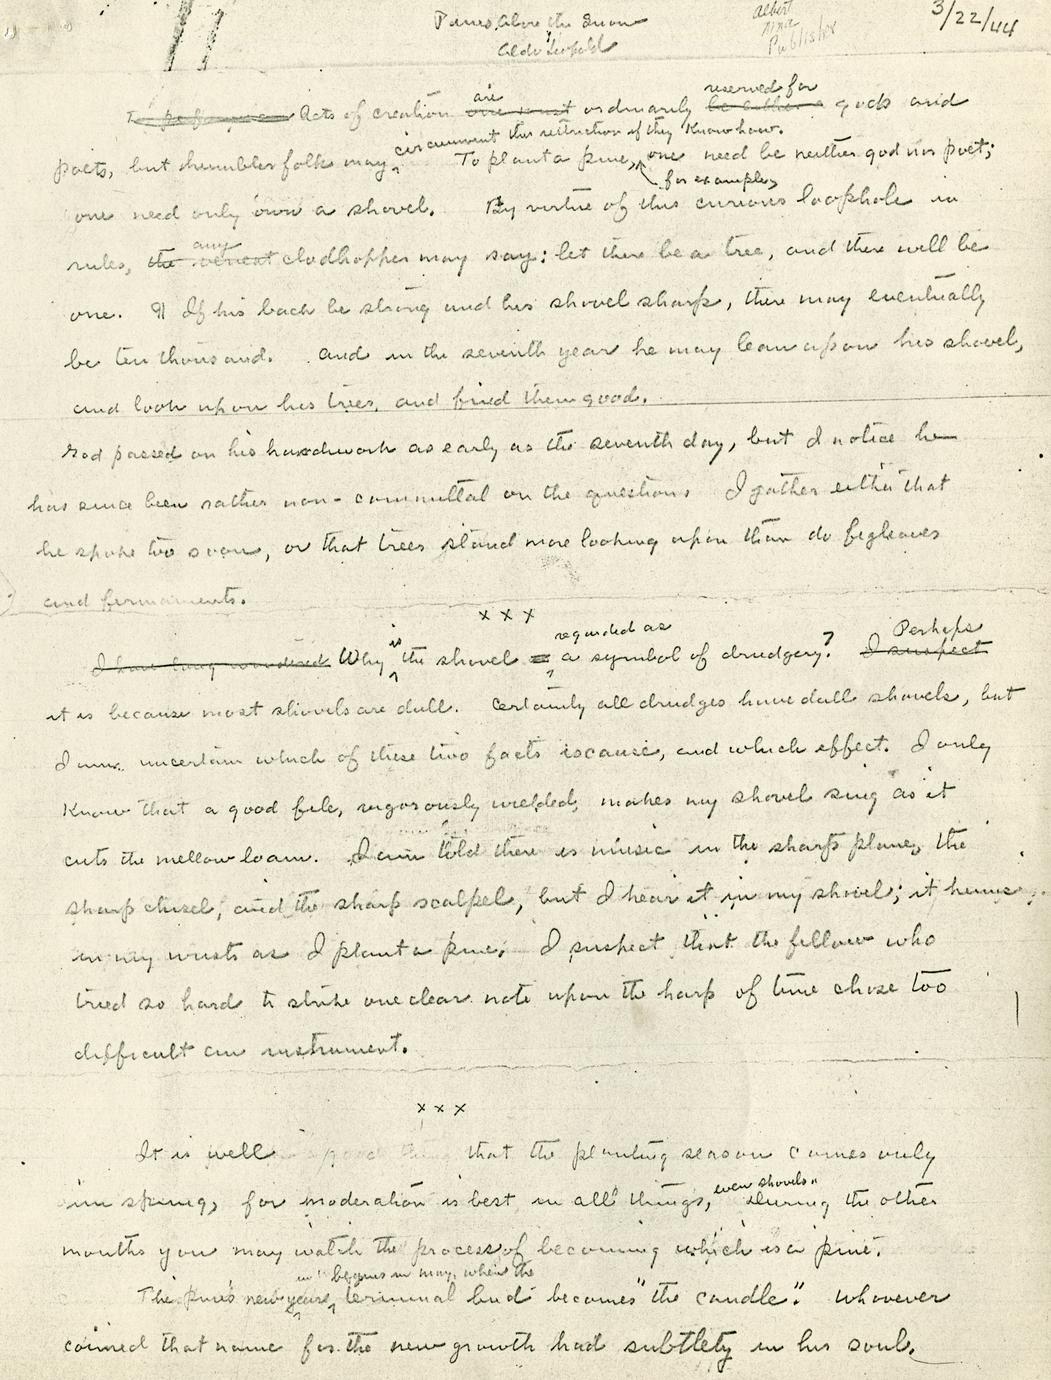 Pines Above the Snow
Aldo Leopold
Albert
Publisher
3/22/44
are reserved for
Acts of creation one must ordinarily be either a gods and
circumvent this restriction if they know how.
poets, but humbler folk may To plant a pine, one need be neither god nor poet;
for example,
one need only own a shovel. By virtue of this curious loophole in
any
rules, the veriest clodhopper may say: let there be a tree, and there will be
one. ¶ If his back be strong and his shovel sharp, there may eventually
be ten thousand. And in the seventh year he may lean upon his shovel,
and look upon his trees, and find them good.
God passed on his handiwork as early as the seventh day, but I notice he
has since been rather non-committal on the question. I gather either that
he spoke too soon, or that trees stand more looking upon than do figleaves
and firmaments.
x x x
is regarded as Perhaps
I have long wondered Why the shovel a symbol of drudgery? I suspect
it is because most shovels are dull. Certainly all drudges have dull shovels, but
I am uncertain which of these two facts is cause, and which effect. I only
know that a good file, vigorously wielded, makes my shovel sing as it
cuts the mellow loam. I am told there is music in the sharp plane, the
sharp chisel, and the sharp scalpel, but I hear it in my shovel; it hums
in my wrists as I plant a pine. I suspect that the fellow who
tried so hard to strike one clear note upon the harp of time chose too
difficult an instrument.
x x x
It is well that the planting season comes only
even shovels.
in spring, for moderation is best in all things, During the other
months you may watch the process of becoming which is a pine.
begins in may, when the
The pine's new years terminal bud becomes "the candle." Whoever
coined that name for the new growth had subtlety in his soul.